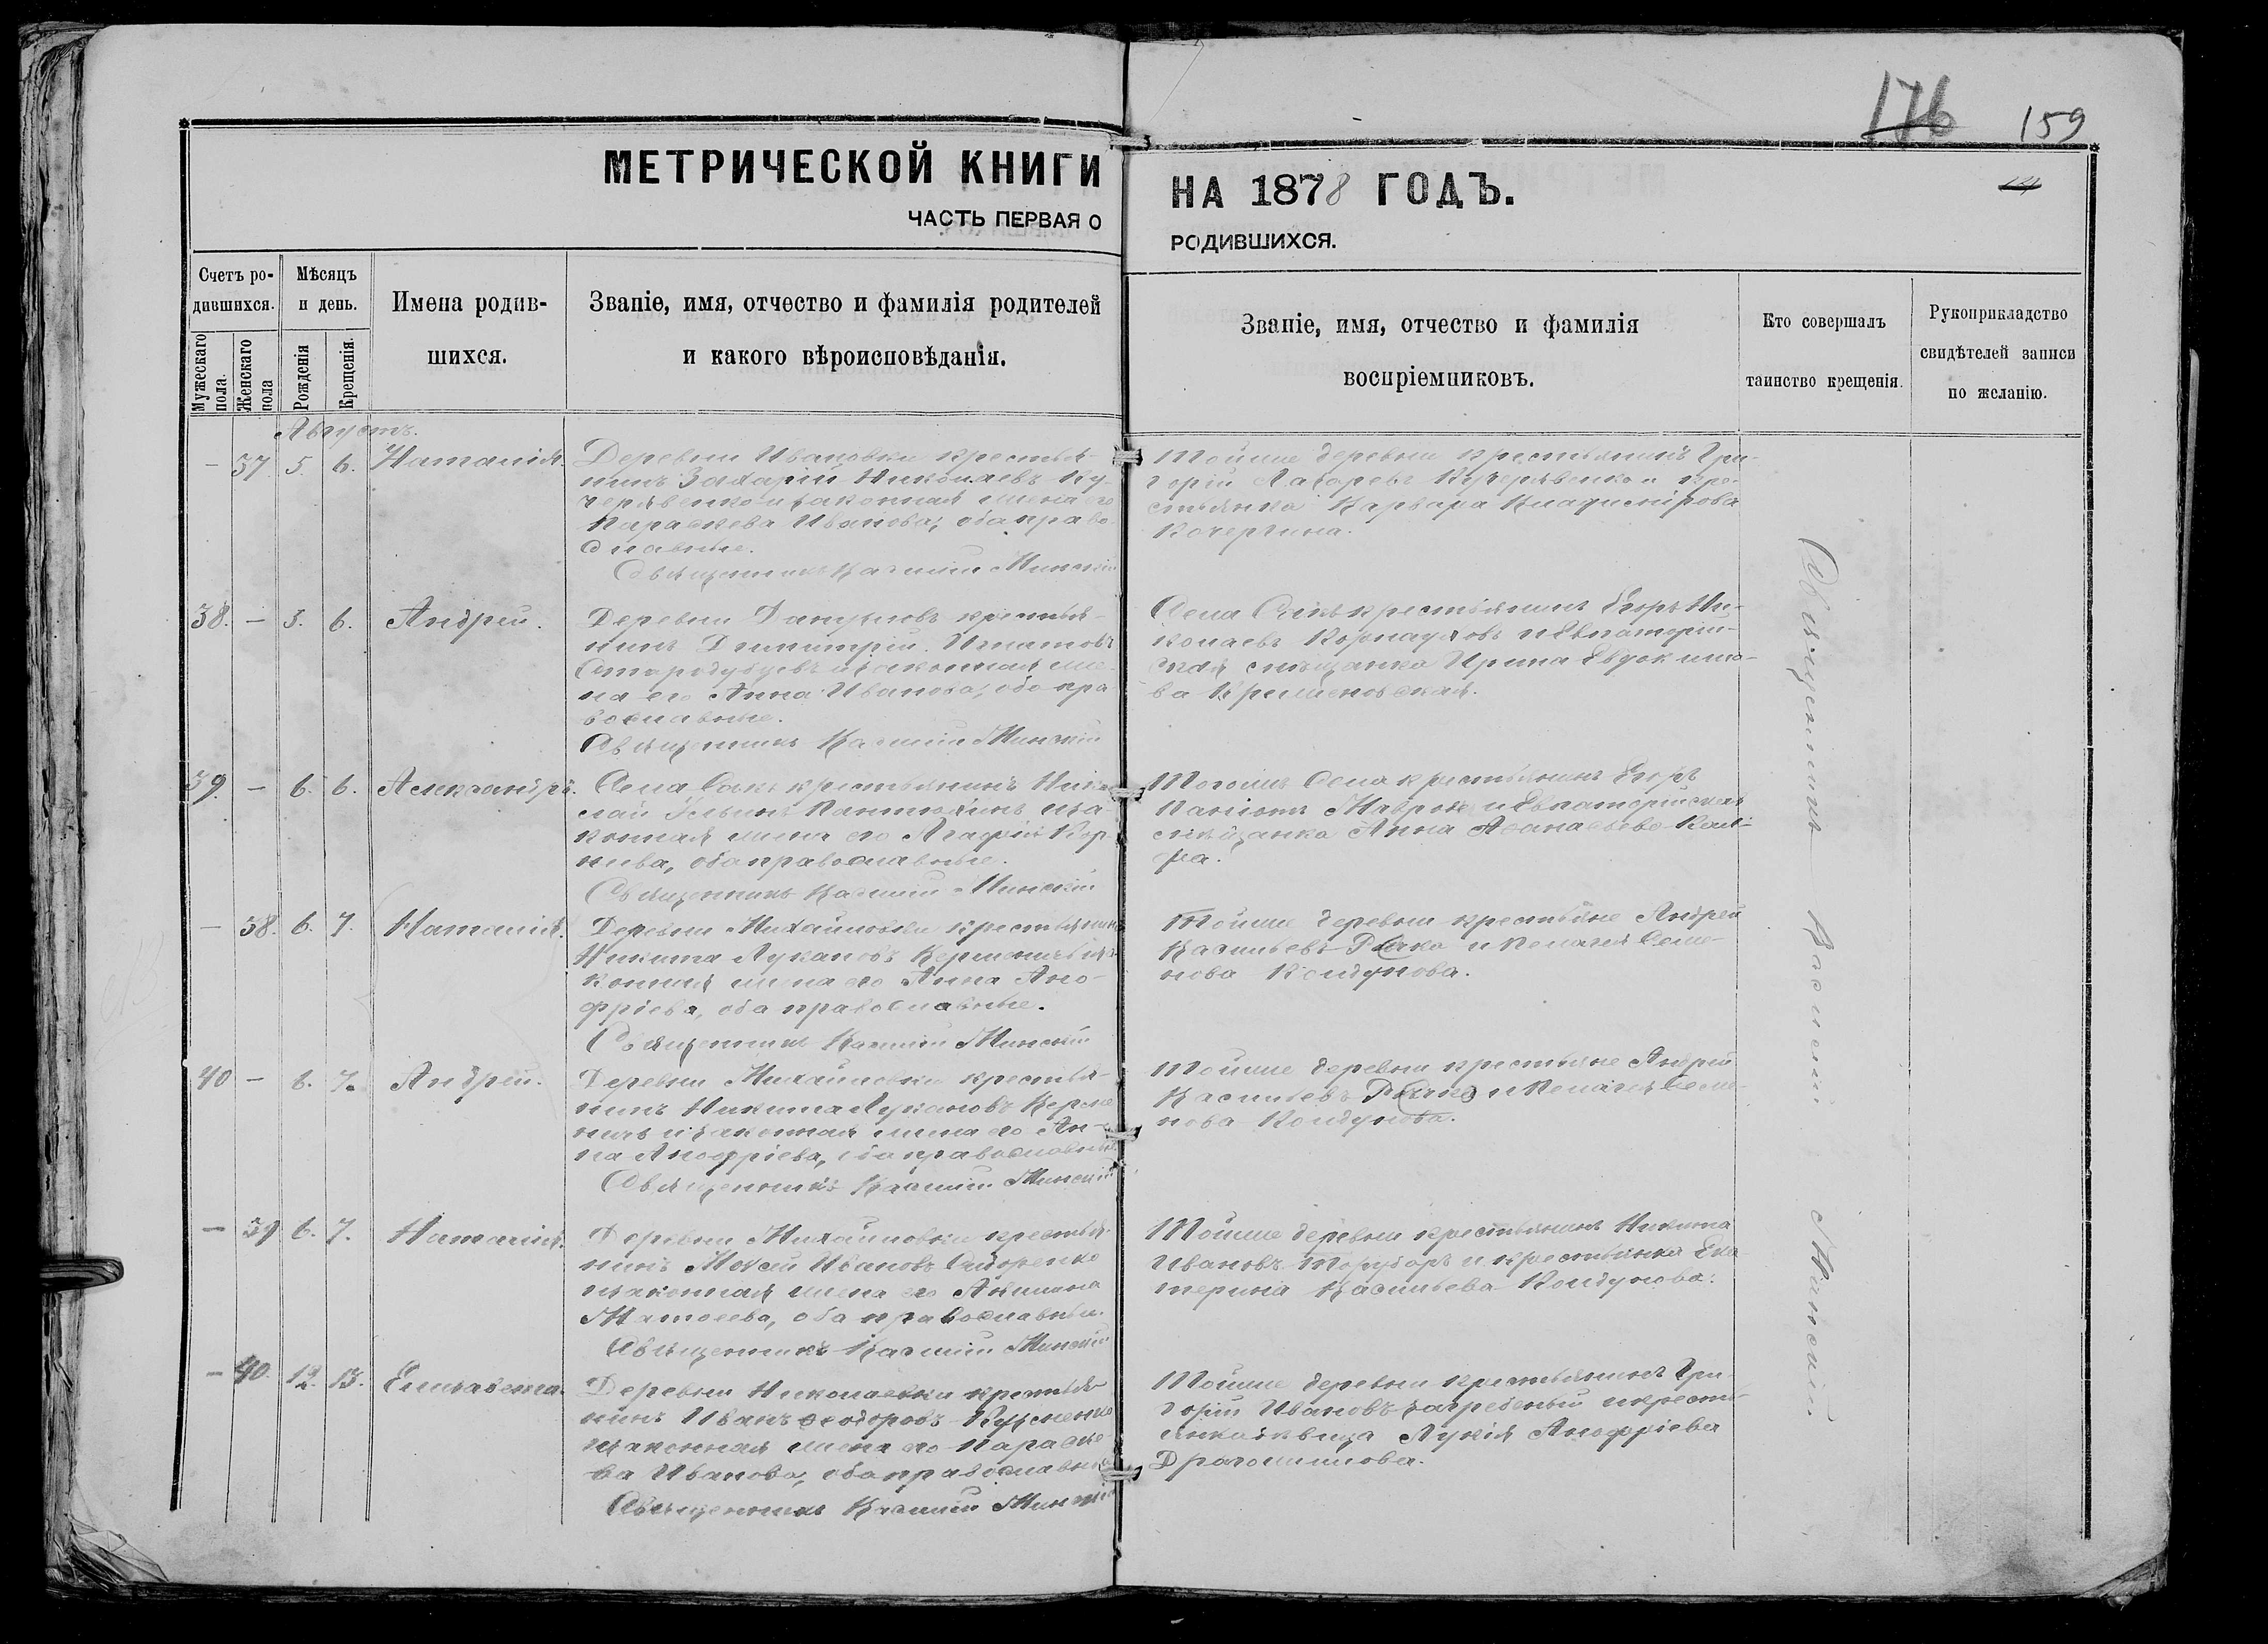 176 159
МЕТРИЧЕСКОЙ КНИГИ
НА 1878 ГОДЪ.
ЧАСТЬ ПЕРВАЯ О
РОДИВШИХСЯ.
Счетъ ро-
дившихся.
Мужескаго
пола.
Женскаго
пола
Мѣсяцъ
и день.
Рожденія
Крещенія.
Имена родив-
шихся.
Званіе, имя, отчество и фамилія родителей
и какого вѣроисповѣданія.
Званіе, имя, отчество и фамилія
воспріемниковъ.
Кто совершалъ
таинство крещенія.
Рукоприкладство
свидѣтелей записи
по желанію.
Августъ.
– 37 5. 6. Наталія.
Деревни Ивановки крестья-
нинъ Захарій Николаевъ Ку-
черявенко и законная жена его
Параскева Иванова, оба право-
славные.
Священникъ Василій Минскій
Тойже деревни крестьянинъ Гри-
горій Лазаревъ Кучерявенко и кре-
стьянка Варвара Владимірова
Кочергина.
38. – 5. 6. Андрей.
Деревни крестья-
нинъ Димитрій Игнатовъ
Стародубцевъ и законная же-
на его Анна Иванова, оба пра-
вославные.
Священникъ Василій Минскій
Села Сакъ крестьянинъ Егоръ Ни-
колаевъ и Евпаторій-
ская мѣщанка Ирина Евдокимо-
ва
39. – 6. 6. Александръ.
Села Сакъ крестьянинъ Нико-
лай Ильинъ и за-
конная жена его Агафія Кор-
нива, оба православные.
Священникъ Василій Минскій
Тогоже Села крестьянинъ Егоръ
и Евпаторійская
мѣщанка Анна Аѳанасьева
– 38. 6. 7. Наталія.
Деревни Михайловки крестьянинъ
Никита Лукановъ и за-
конная жена его Анна Ано-
фріева, оба православные.
Священникъ Василій Минскій
Тойже деревни крестьяне Андрей
Васильевъ и Пелагея Семе-
нова Колдунова.
40 – 6. 7. Андрей.
Деревни Михайловки крестья-
нинъ Никита Лукановъ
и законная жена его Ан-
на Анофріева, оба православные
Священникъ Василій Минскій
Тойже деревни крестьяне Андрей
Васильевъ и Пелагея Семе-
нова Колдунова.
– 39 6. 7. Наталія.
Деревни Михайловки крестья-
нинъ Мокей Ивановъ Сидоренко
и законная жена его Акилина
Матѳеева, оба православные.
Священникъ Василій Минскій
Тойже деревни крестьянинъ Никита
Ивановъ и крестьянка Ека-
терина Васильева Колдунова.
– 40. 12. 13. Елисавета.
Деревни Николаевки крестья-
нинъ Иванъ Ѳеодоровъ Кузменко
и законная жена его Параске-
ва Иванова, оба православные
Священникъ Василій Минскій
Тойже деревни крестьянинъ Гри-
горій Ивановъ и кресть-
янка Лукія Анофріева
Драгомилова.
Священникъ Василій Минскій